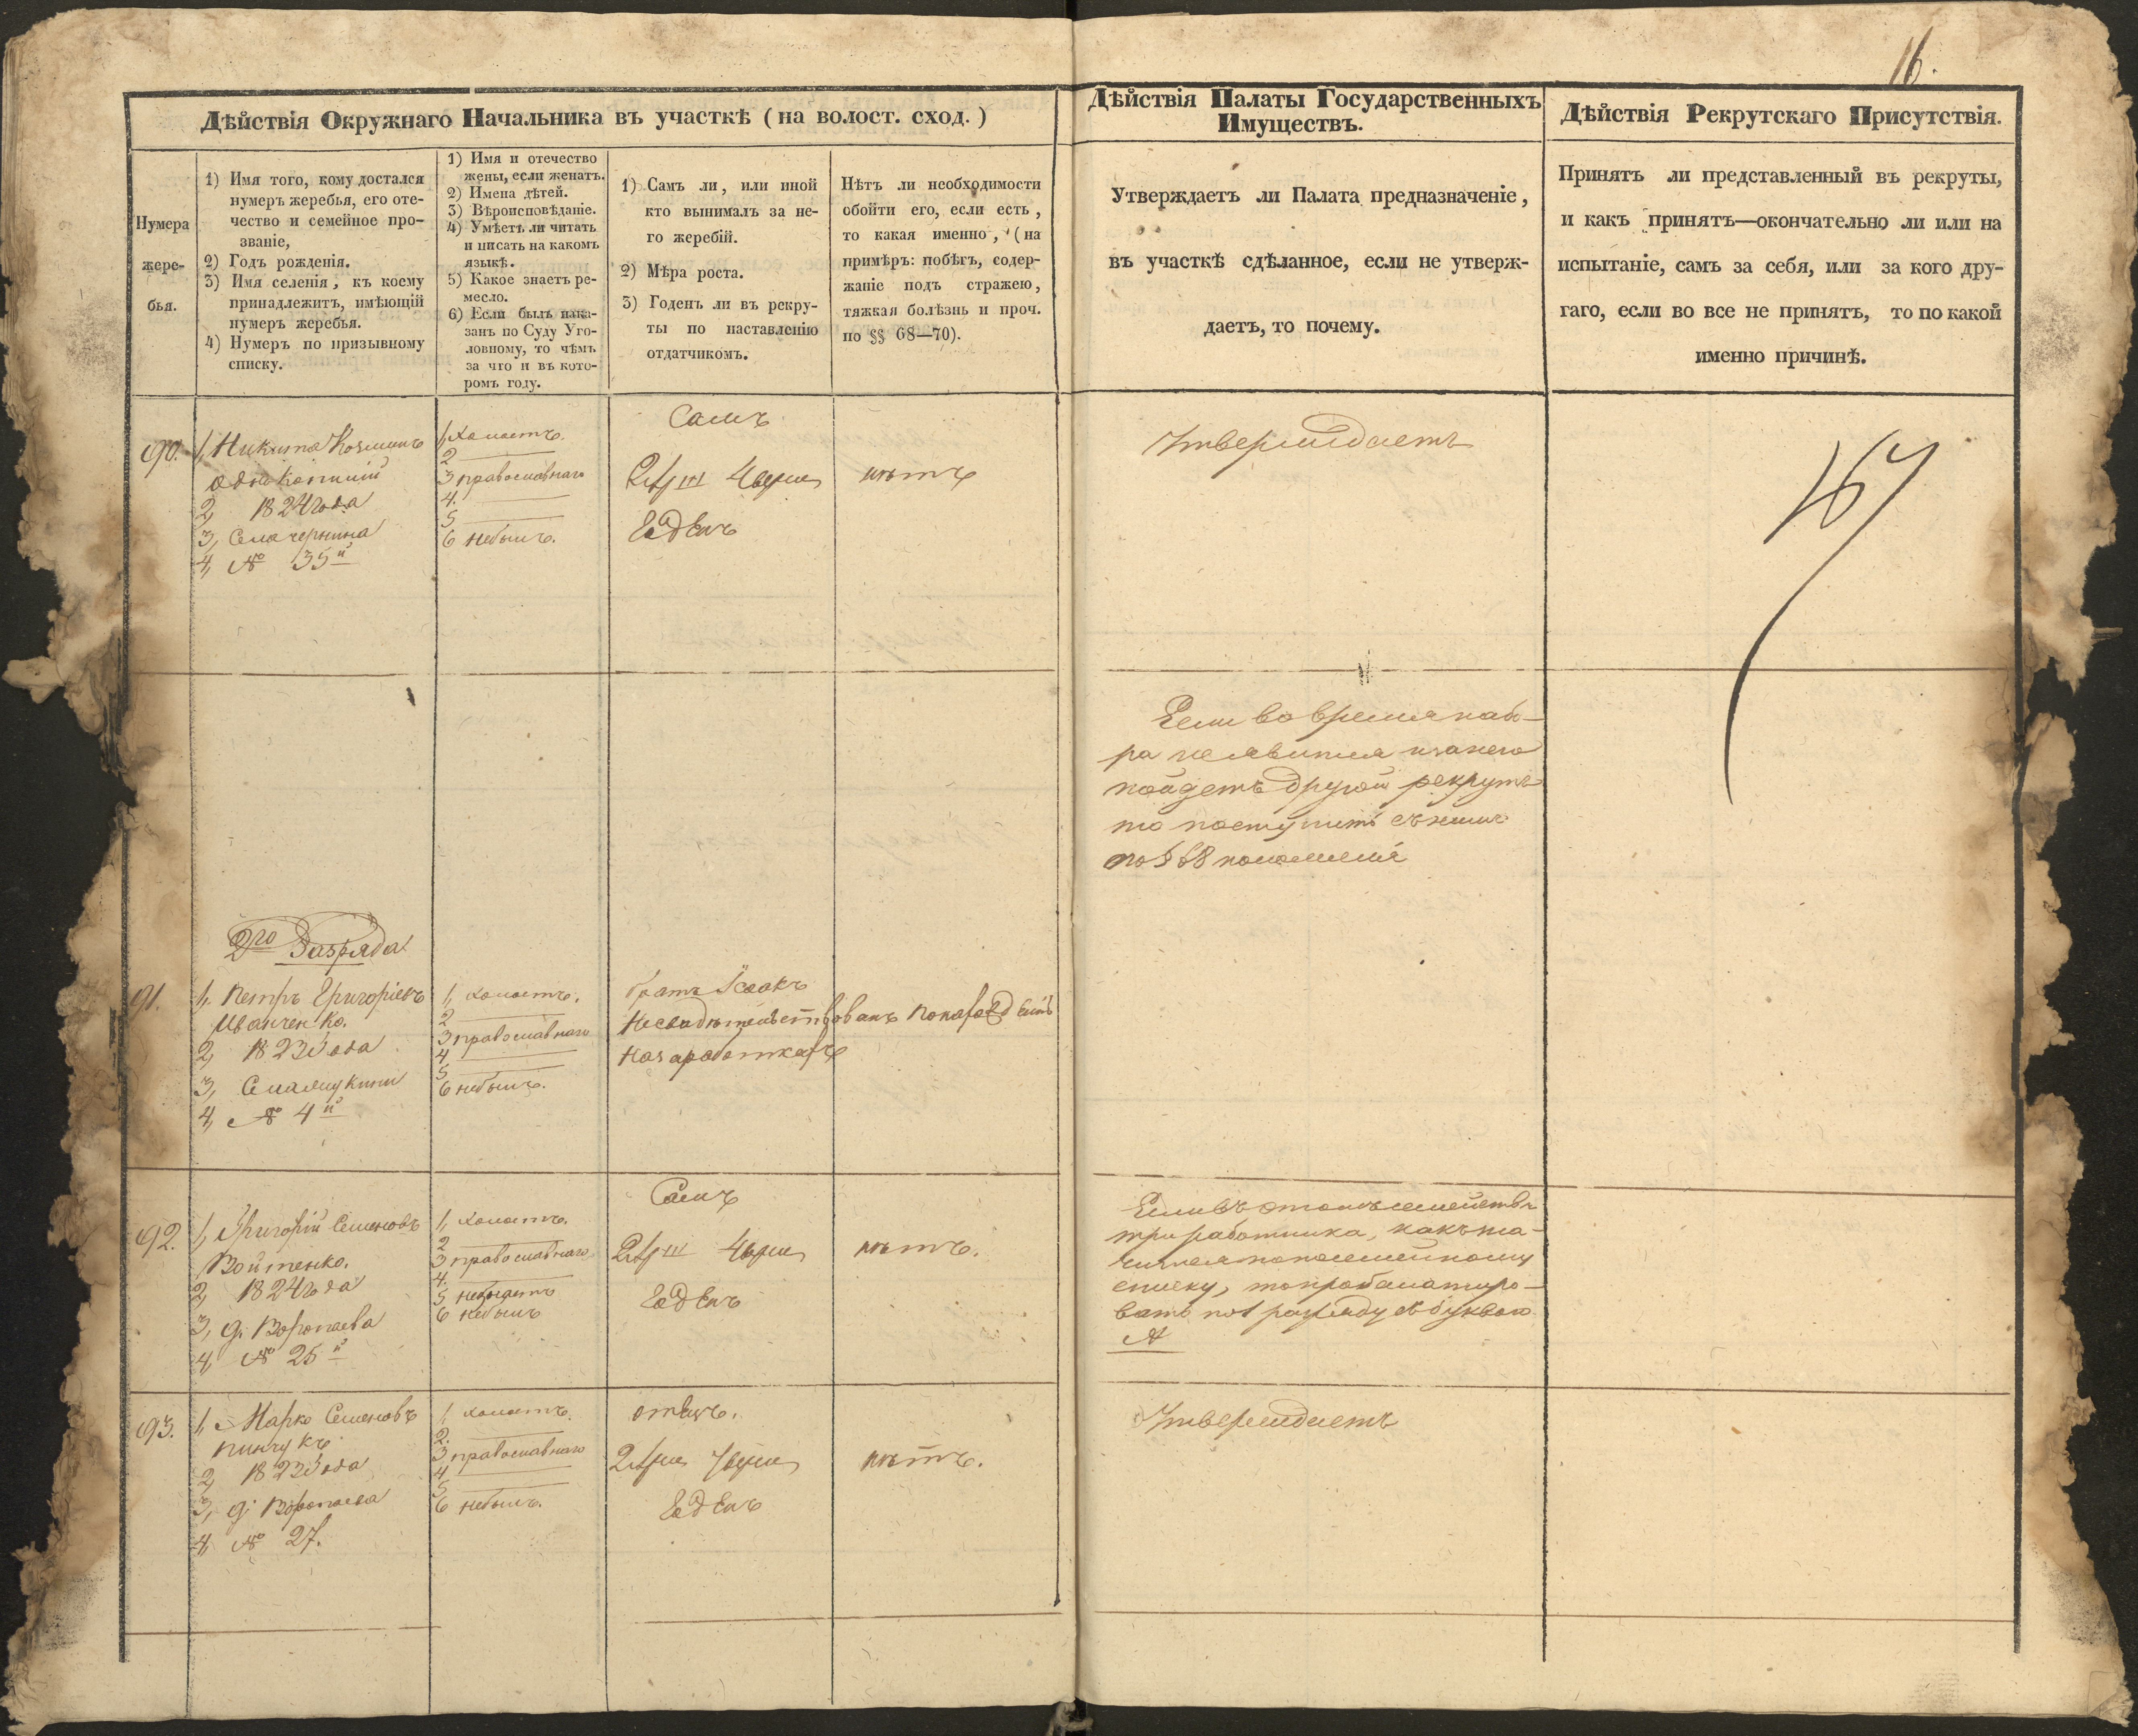 16.
Дѣйствія Окружнаго Начальника въ участкѣ (на волост. сход.)
Дѣйствія Палаты Государственныхъ
Имуществъ.
Дѣйствія Рекрутскаго Присутствія.
Нумера
жере-
бья.
1) Имя того, кому достался
нумеръ жеребья, его оте-
чество и семейное про-
званіе,
2) Годъ рожденія.
3) Имя селенія, къ коему
принадлежитъ, имѣющій
нумеръ жеребья.
4) Нумеръ по призывному
списку.
1) Имя и отечество
жены, если женатъ.
2) Имена дѣтей.
3) Вѣроисповѣданіе.
4) Умѣетъ ли читать
и писать на какомъ
языкѣ.
5) Какое знаетъ ре-
месло.
6) Если былъ нака-
занъ по Суду Уго-
ловному, то чѣмъ
за что и въ кото-
ромъ году.
1) Самъ ли, или иной
кто вынималъ за не-
го жеребій.
2) Мѣра роста.
3) Годенъ ли въ рекру-
ты по наставленію
отдатчикомъ.
Нѣтъ ли необходимости
обойти его, если есть,
то какая именно, (на
примѣръ: побѣгъ, содер-
жаніе подъ стражею,
тяжкая болѣзнь и проч.
по §§ 68—70).
Утверждаетъ ли Палата предназначеніе,
въ участкѣ сдѣланное, если не утверж-
даетъ, то почему.
Принятъ ли представленный въ рекруты,
и какъ принятъ—окончательно ли или на
испытаніе, самъ за себя, или за кого дру-
гаго, если во все не принятъ, то по какой
именно причинѣ.
90.
1, Никита Козминъ
2, 1824 года
3, Села
4, № 35й
1, Холостъ.
2
3 православнаго
4.
5
6 небылъ.
Самъ
2 4
Годенъ
нѣтъ
Утверждаетъ
Если во время набо-
ра неявится и за него
пойдетъ другой рекрутъ
то поступить съ нимъ
по § 68 положенія
2го Разряда
91.
1. Петръ Григоріевъ
Иванченко.
2, 1823 года
3, Села
4, № 4й
1, холостъ.
2
3 православнаго
4
5
6 небылъ.
братъ Ісаакъ
Несвидѣтельствованъ
Назаработкахъ
92.
1, Григорій Семеновъ
Войтенко.
2, 1824 года
3, д. Воропаева
4, № 25й
1, холостъ.
2
3 православнаго
4.
5 незнаетъ
6 небылъ
Самъ
2 4
Годенъ
нѣтъ.
Если въ этомъ семействѣ
три работника, какъ зна-
чится по посемейному
списку, то
вать по 1 разряду съ буквою
А
93.
1, Марко Семеновъ
Пинчукъ
2, 1823 года
3, д. Воропаева
4, № 27.
1, холостъ.
2.
3 православнаго
4
5
6 небылъ.
отецъ.
2 7
Годенъ
нѣтъ.
Утверждаетъ